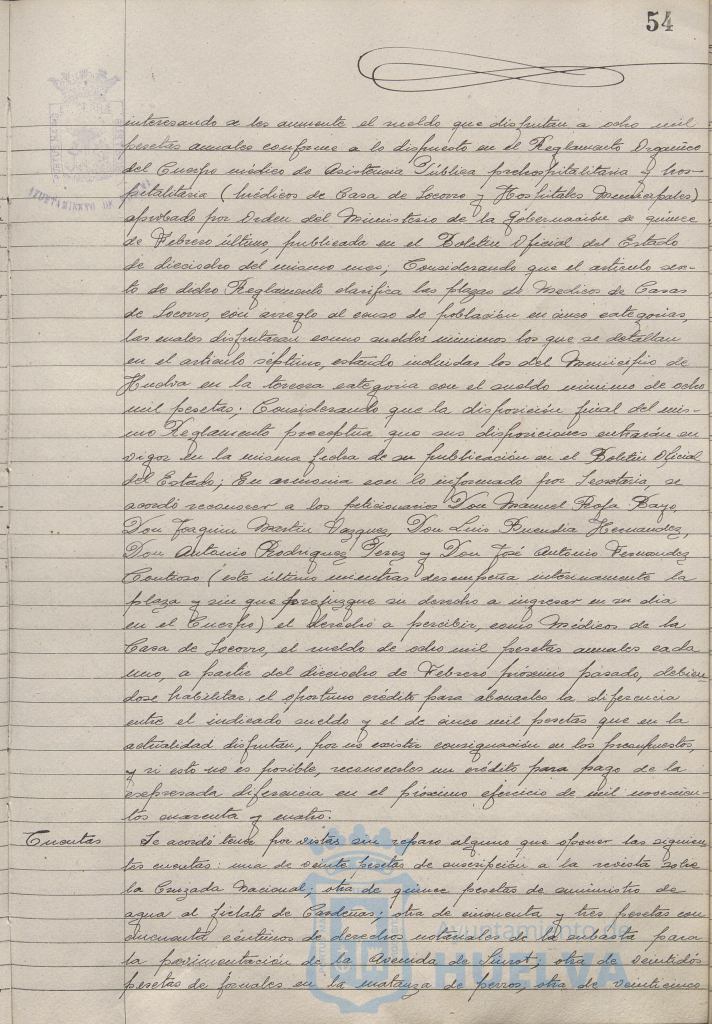 54
AYUNTAMIENTO DE
interesando se les aumente el sueldo que disfrutan a ocho mil
pesetas anuales conforme a lo dispuesto en el Reglamento Orgánico
del Cuerpo médico de Asistencia Pública prehospitalaria y hos-
pitalaria (Médicos de Casa de Socorro y Hospitales Municipales)
aprobado por Orden del Ministerio de la Gobernación de quince
de Febrero último, publicada en el Boletín Oficial del Estado
de dieciocho del mismo mes; Considerando que el artículo sex-
to de dicho Reglamento clasifica las plazas de Médicos de Casas
de Socorro, con arreglo al censo de población en cinco categorías,
las cuales disfrutaran como sueldos mínimos los que se detallan
en el artículo séptimo, estando incluidas los del Municipio de
Huelva en la tercera categoría con el sueldo mínimo de ocho
mil pesetas; Considerando que la disposición final del mis-
mo Reglamento preceptua que sus disposiciones entrarán en
vigor en la misma fecha de su publicación en el Boletín Oficial
del Estado; En armonía con lo informado por Secretaría, se
acordó reconocer a los peticionarios Don Manuel Rofa Bayo,
Don Joaquin Martin Vazquez, Don Luis Buendia Hernandez,
Don Antonio Rodriguez Perez y Don José Antonio Fernandez
Contioso (éste último mientras desempeña interinamente la
plaza y sin que prejuzgue su derecho a ingresar en su dia
en el Cuerpo) el derecho a percibir, como Médicos de la
Casa de Socorro, el sueldo de ocho mil pesetas anuales cada
uno, a partir del dieciocho de Febrero próximo pasado, debien
dose habilitar el oportuno crédito para abonarles la diferencia
entre el indicado sueldo y el de cinco mil pesetas que en la
actualidad disfrutan, por no existir consignación en los presupuestos,
y si esto no es posible, reconocerles un crédito para pago de la
expresada diferencia en el próximo ejercicio de mil novecien-
tos cuarenta y cuatro.
Cuentas
Se acordó tener por vistas sin reparo alguno que oponer las siguien
tes cuentas: una de veinte pesetas de suscripción a la revista sobre
la Cruzada Nacional; otra de quince pesetas de suministro de
agua al fielato de Cardeñas; otra de cincuenta y tres pesetas con
cincuenta céntimos de derechos notariales de la subasta para
la pavimentación de la Avenida de Siurot; otra de veintidós
pesetas de jornales en la matanza de perros, otra de veinticinco
Ayuntamiento de
HUELVA